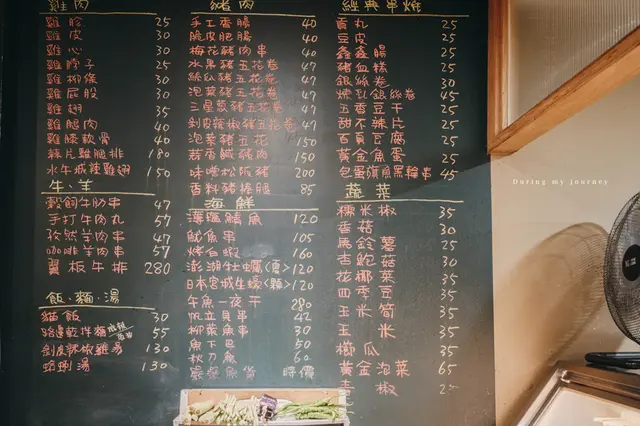 雞肉
雞胗 25
雞皮 30
雞心 30
雞脖子 25
雞柳條 30
雞屁股 30
雞翅 35
雞腿肉 40
雞膝軟骨 40
蒜片雞腿排 180
水牛城辣雞翅 150
牛.羊
穀飼牛肋串 47
手打牛肉丸 57
孜然羊肉串 47
咖啡羊肉串 57
翼板牛排 280
飯.麵.湯
貓飯 30
乾拌麵 55
剁皮辣椒雞湯 130
蛤蜊湯 130
豬肉
手工香腸 40
脆皮肥腸 40
梅花豬肉串 40
水果豬五花卷 47
絲瓜豬五花卷 47
泡菜豬五花卷 47
三星蔥豬五花卷 47
剝皮辣椒豬五花卷 47
泡菜豬五花 150
蒜香鹹豬肉 150
味噌松阪豬 200
香料豬棒腿 85
海鮮
薄鹽鯖魚 120
魷魚串 105
烤白蝦 160
澎湖牡蠣<夏> 120
日本宮城牡蠣<顆> 120
午魚一夜干 280
帆立貝串 42
柳葉魚串 30
魚下巴 50
秋刀魚 60
魚貨 時價
經典串燒
貢丸 25
豆皮 25
鑫鑫腸 25
豬血糕 25
銀絲卷 30
爆乳銀絲卷 45
五香豆干 25
甜不辣片 25
百頁豆腐 25
黃金魚蛋 25
包蛋旗魚黑輪串 45
蔬菜
糯米椒 35
香菇 30
馬鈴薯 25
杏鮑菇 30
花椰菜 35
四季豆 35
玉米筍 35
玉米 35
櫛瓜 35
黃金泡菜 65
青椒
During my journey